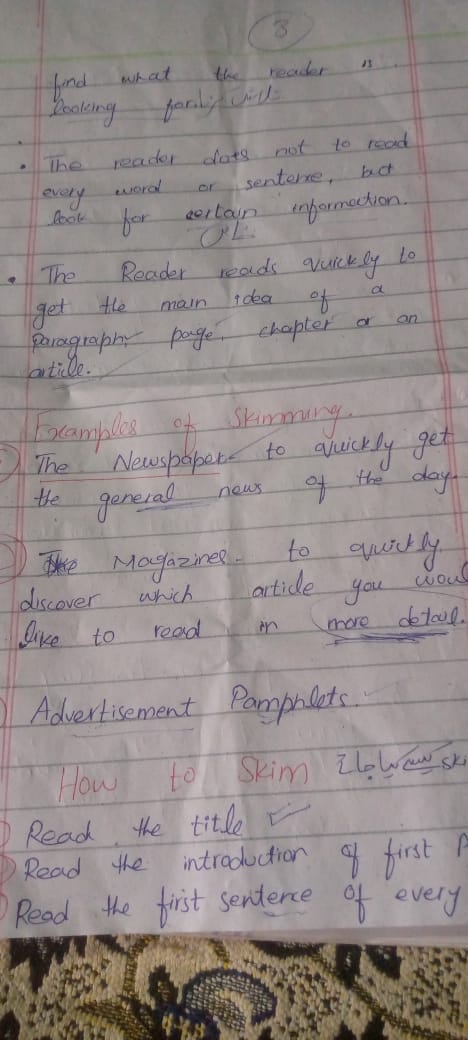 3
find what the reader is
looking for
• The reader dots not to read
every word or sentense, but
look for certain information.
• The Reader reads quickly to
get the main idea of a
paragraph, page, chapter or an
article.
Examples of Skimming.
The Newspaper- to quickly get
the general news of the day.
Magazines- to quickly
discover which article you wou
like to read in more detail.
Advertisement Pamphlets.
How to Skim
Read the title
Read the introduction of first P
Read the first sentence of every